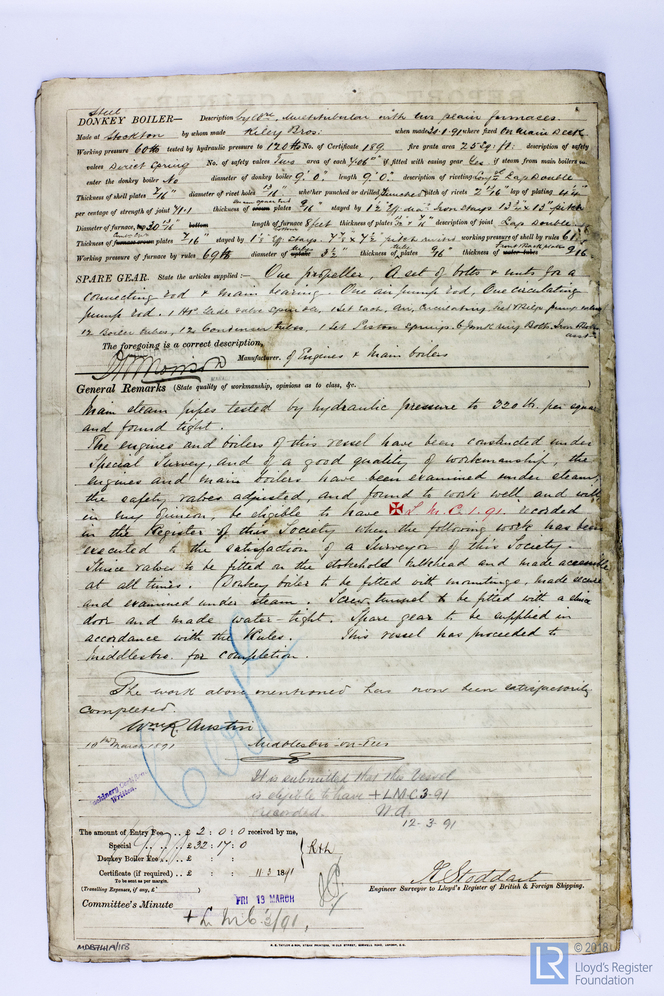 Steel
DONKEY BOILER— Description Cylr. Multitubular with two plain furnaces.
Made at Stockton by whom made Riley Bros: when made 20-1-91 where fixed On Main Deck
Working pressure 60 lb tested by hydraulic pressure to 120 lb No. of Certificate 189 fire grate area 25 sq: ft: description of safety
valves Direct Spring No. of safety valves Two area of each 7.06" if fitted with easing gear Yes if steam from main boilers can
enter the donkey boiler No diameter of donkey boiler 9'. 0" length 9'. 0" description of riveting Lap Double
Thickness of shell plates 7/16" diameter of rivet holes 13/16" whether punched or drilled Punched pitch of rivets lap of plating
per centage of strength of joint 71.1 thickness of crown plates 9/16" stayed by Iron stays 13½" x 13" pitch
Diameter of furnace, top 30 bottom length of furnace 8 feet thickness of plates description of joint Lap Double
Thickness of furnace crown plates 7/16" stayed by stays. pitch working pressure of shell by rules
Working pressure of furnace by rules 69 lb diameter of uptake 3½" thickness of plates thickness of water tubes 9/16
SPARE GEAR. State the articles supplied:— One propeller, A set of bolts & nuts for a
connecting rod & main bearing. One air pump rod, One circulating
pump rod. 1 Set each, Air, Circulating, Feed & Bilge pump valves
12 Boiler tubes, 12 Condenser tubes, 1 Set Piston Springs. 6 Junk ring Bolts. Iron
The foregoing is a correct description,
Manufacturer. of Engines & Main boilers
General Remarks (State quality of workmanship, opinions as to class, &c.
Main steam pipes tested by hydraulic pressure to 320 lb. per square
and found tight.
The engines and boilers of this vessel have been constructed under
Special Survey, and of a good quality of workmanship, the
engines and main boilers have been examined under steam,
the safety valves adjusted, and found to work well and will
in my opinion, be eligible to have ✠ L.M.C. 1.91. recorded
in the Register of this Society when the following work has been
executed to the satisfaction of a Surveyor of this Society.
Sluice valves to be fitted on the stokehold bulkhead and made accessible
at all times. Donkey boiler to be fitted with mountings, made secure
and examined under steam. Screw tunnel to be fitted with a sluice
door and made water-tight. Spare gear to be supplied in
accordance with the Rules. This vessel has proceeded to
Middlesbro. for completion.
The work above mentioned has now been satisfactorily
completed
Wm R. Austin
10th March 1891 Middlesbro-on-Tees
It is submitted that this Vessel
is eligible to have + LMC 3-91
recorded.
12-3-91
Machinery Certificate
Written.
The amount of Entry Fee .. £ 2 : 0 : 0 received by me,
Special .. £ 32 : 17 : 0
Donkey Boiler Fee .. £ : :
Certificate (if required) .. £ : : 11 3 1891
To be sent as per margin.
(Travelling Expenses, if any, £ )
Stoddart
Engineer Surveyor to Lloyd's Register of British & Foreign Shipping.
Committee's Minute FRI 13 MARCH
+ L M C 3/91,
MDB7411A/1158
© 2018
LR
Lloyd's Register
Foundation